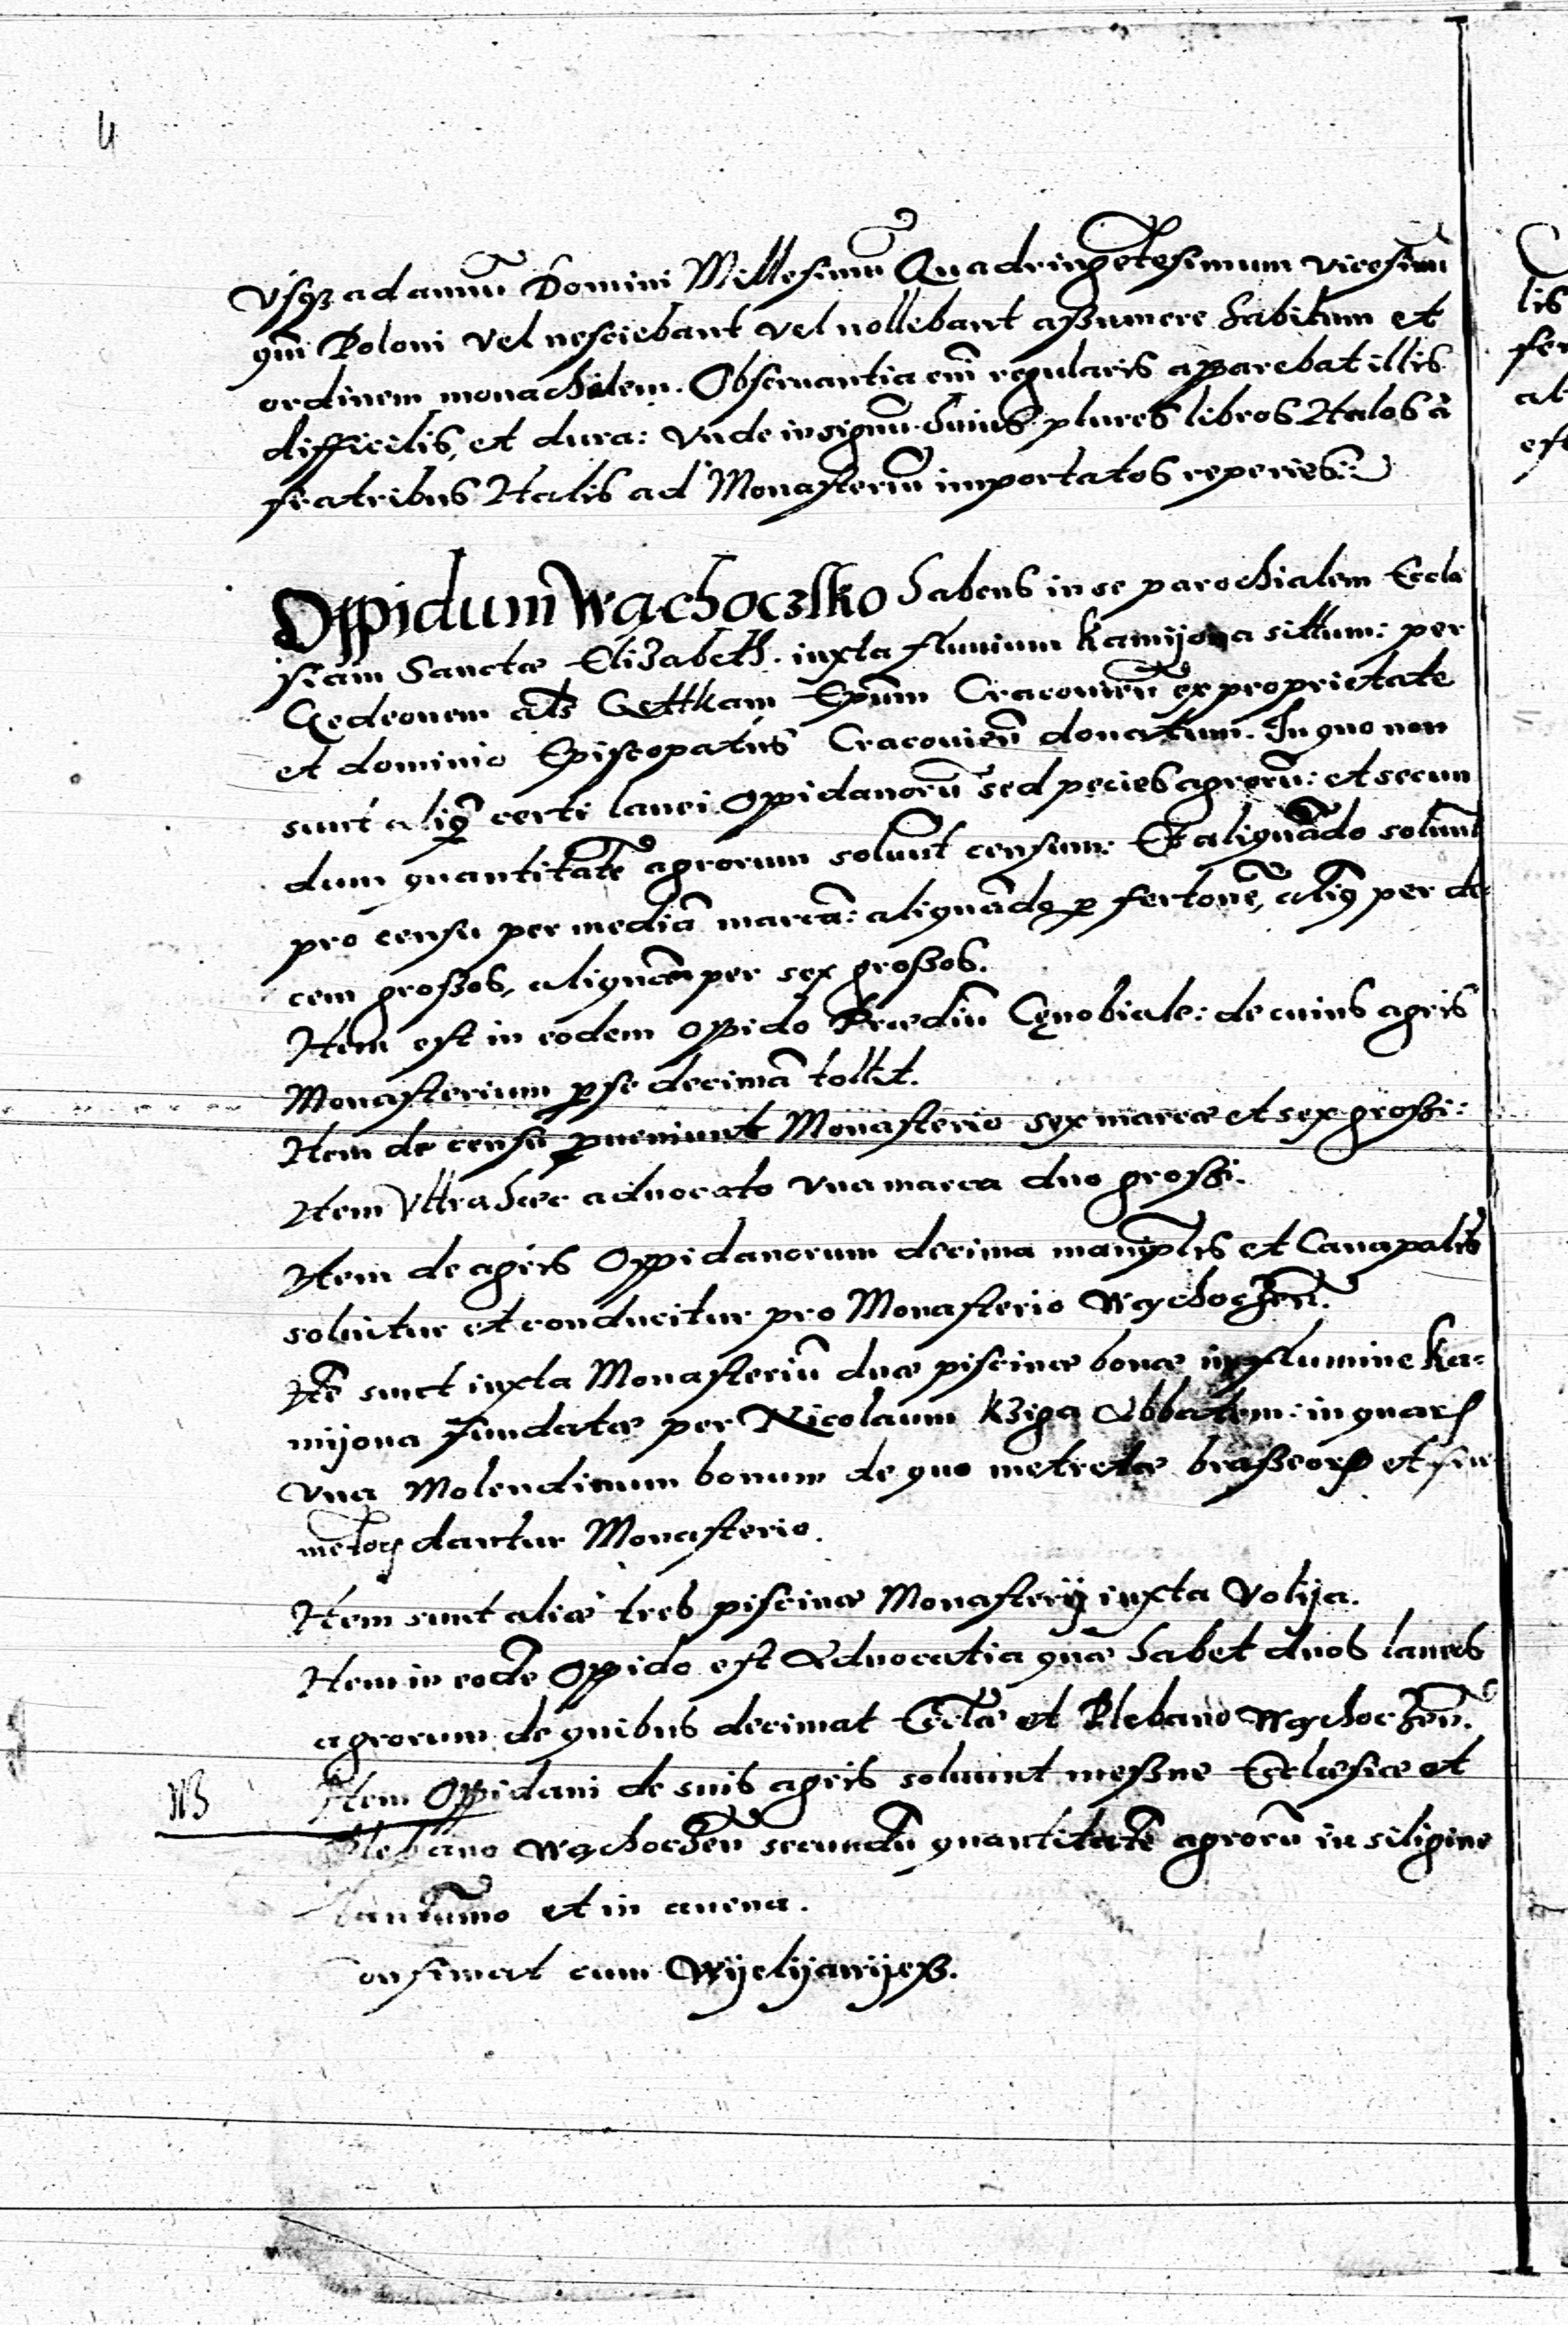 Vsqz ad annũ Domini Millesimũ Quadringẽtesimum vicesimũ
qm̃ Poloni vel nesciebant vel nollebant aßumere habitum et
ordinem monachalem. Obseruantia em̃ regularis apparebat illis
difficilis, et dura: vnde in signũ huius plures libros Italos à
fratribus Italis ad Monasteriũ importatos reperies:
Oppidum Wąchoczsko habens in se parochialem Eccla
siam Sanctæ Elizabeth. iuxta fluuium Kamijona sittum: per
Gedeonem als Gettkam Epũm Cracouieñ ex proprietate
et dominio Episcopatus Cracouieñ donatum. In quo non
sunt aliq̃ certi lanei Oppidanorũ sed pecies agrorũ: et secun
dum quantitatẽ agrorum soluũt censum: Et aliquãdo soluunt
pro censu per mediã marcã: aliquãdo p fertonẽ, aliq̃ per de=
cem großos, aliquãdo per sex großos.
Item est in eodem oppido Prædiũ Cęnobiale: de cuius agris
Monasterium p se decimã tollit.
Item de censu pueniunt Monasterio sex marcæ et sex großi:
Item Vltra hæc aduocato vna marca duo großi.
Item de agris Oppidanorum decima manip̃lis et Canapalis
soluitur et conducitur pro Monasterio Wąchoczeñ.
Itẽ sunt iuxta Monasteriũ duæ piscinæ bonæ in flumine Ka=
mijona fundatæ per Nicolaum Kziga Abbatem: in quar
vna Molendinum bonum de quo metretæ braßeor et fru
mẽtor dantur Monasterio.
Item sunt aliæ tres piscinæ Monasterij iuxta Volija.
Item in eodẽ Oppido est Aduocatia quæ habet duos laneos
agrorum de quibus decimat Ecclæ et Plebano Wąchoczeñ.
NB Item Oppidani de suis agris soluunt meßne Ecclæsiæ et
Plebano Wąchoczeñ secundũ quantitatẽ agrorũ in siligine
tantũmo et in auena.
cum Wijelijawijeß.